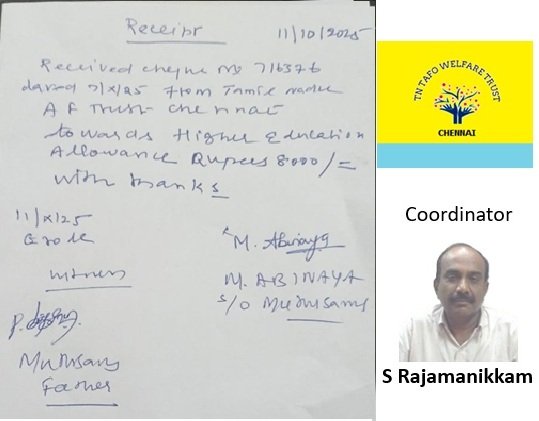 Receipt
11/10/2025
Received cheque no 716376
dated 7/X/25 from Tamil nadu
A F Trust Chennai
towards Higher Education
Allowance Rupees 8000/=
with thanks
11/X/25
Erode
witness
M. Abinaya
M. ABINAYA
Muthusamy
Father
TN TAFO WELFARE TRUST
CHENNAI
Coordinator
S Rajamanikkam